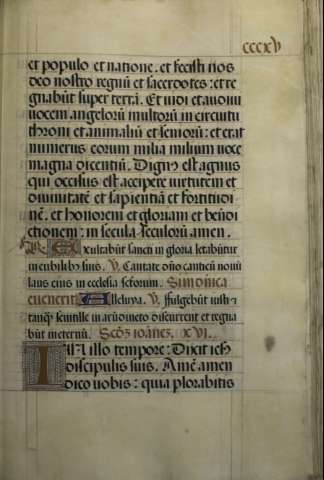 cccxv
et populo et natione. et fecisti nos
deo nostro regnū et sacerdotes: et re
gnabūt super terrā. Et vidi et audivi
vocem angelorū multorū in circuitu
throni et animaliū et seniorū: et erat
numerus eorum milia milium voce
magna dicentiū. Dignꝰ est agnus
qui occisus est accipere virtutem et
divinitatē et sapientiā et fortitudi
nē. et honorem et gloriam et bn̄di
ctionem: in secula seculorū amen.
Exultabūt sancti in gloria letabūtur
in cubilibꝰ suis. V. Cantate dn̄o canticū novū
laus eius in ecclesia sctorum. Si dn̄ica
evenerit Alleluya. V. Fulgebūt iusti
tanqꝫ scintille in arūdineto discurrent et regna
būt in eternū. Scd̄ꝫ ioānē. xvi.
In illo tempore: Dixit iesꝰ
discipulis suis. Amē amen
dico vobis: quia plorabitis